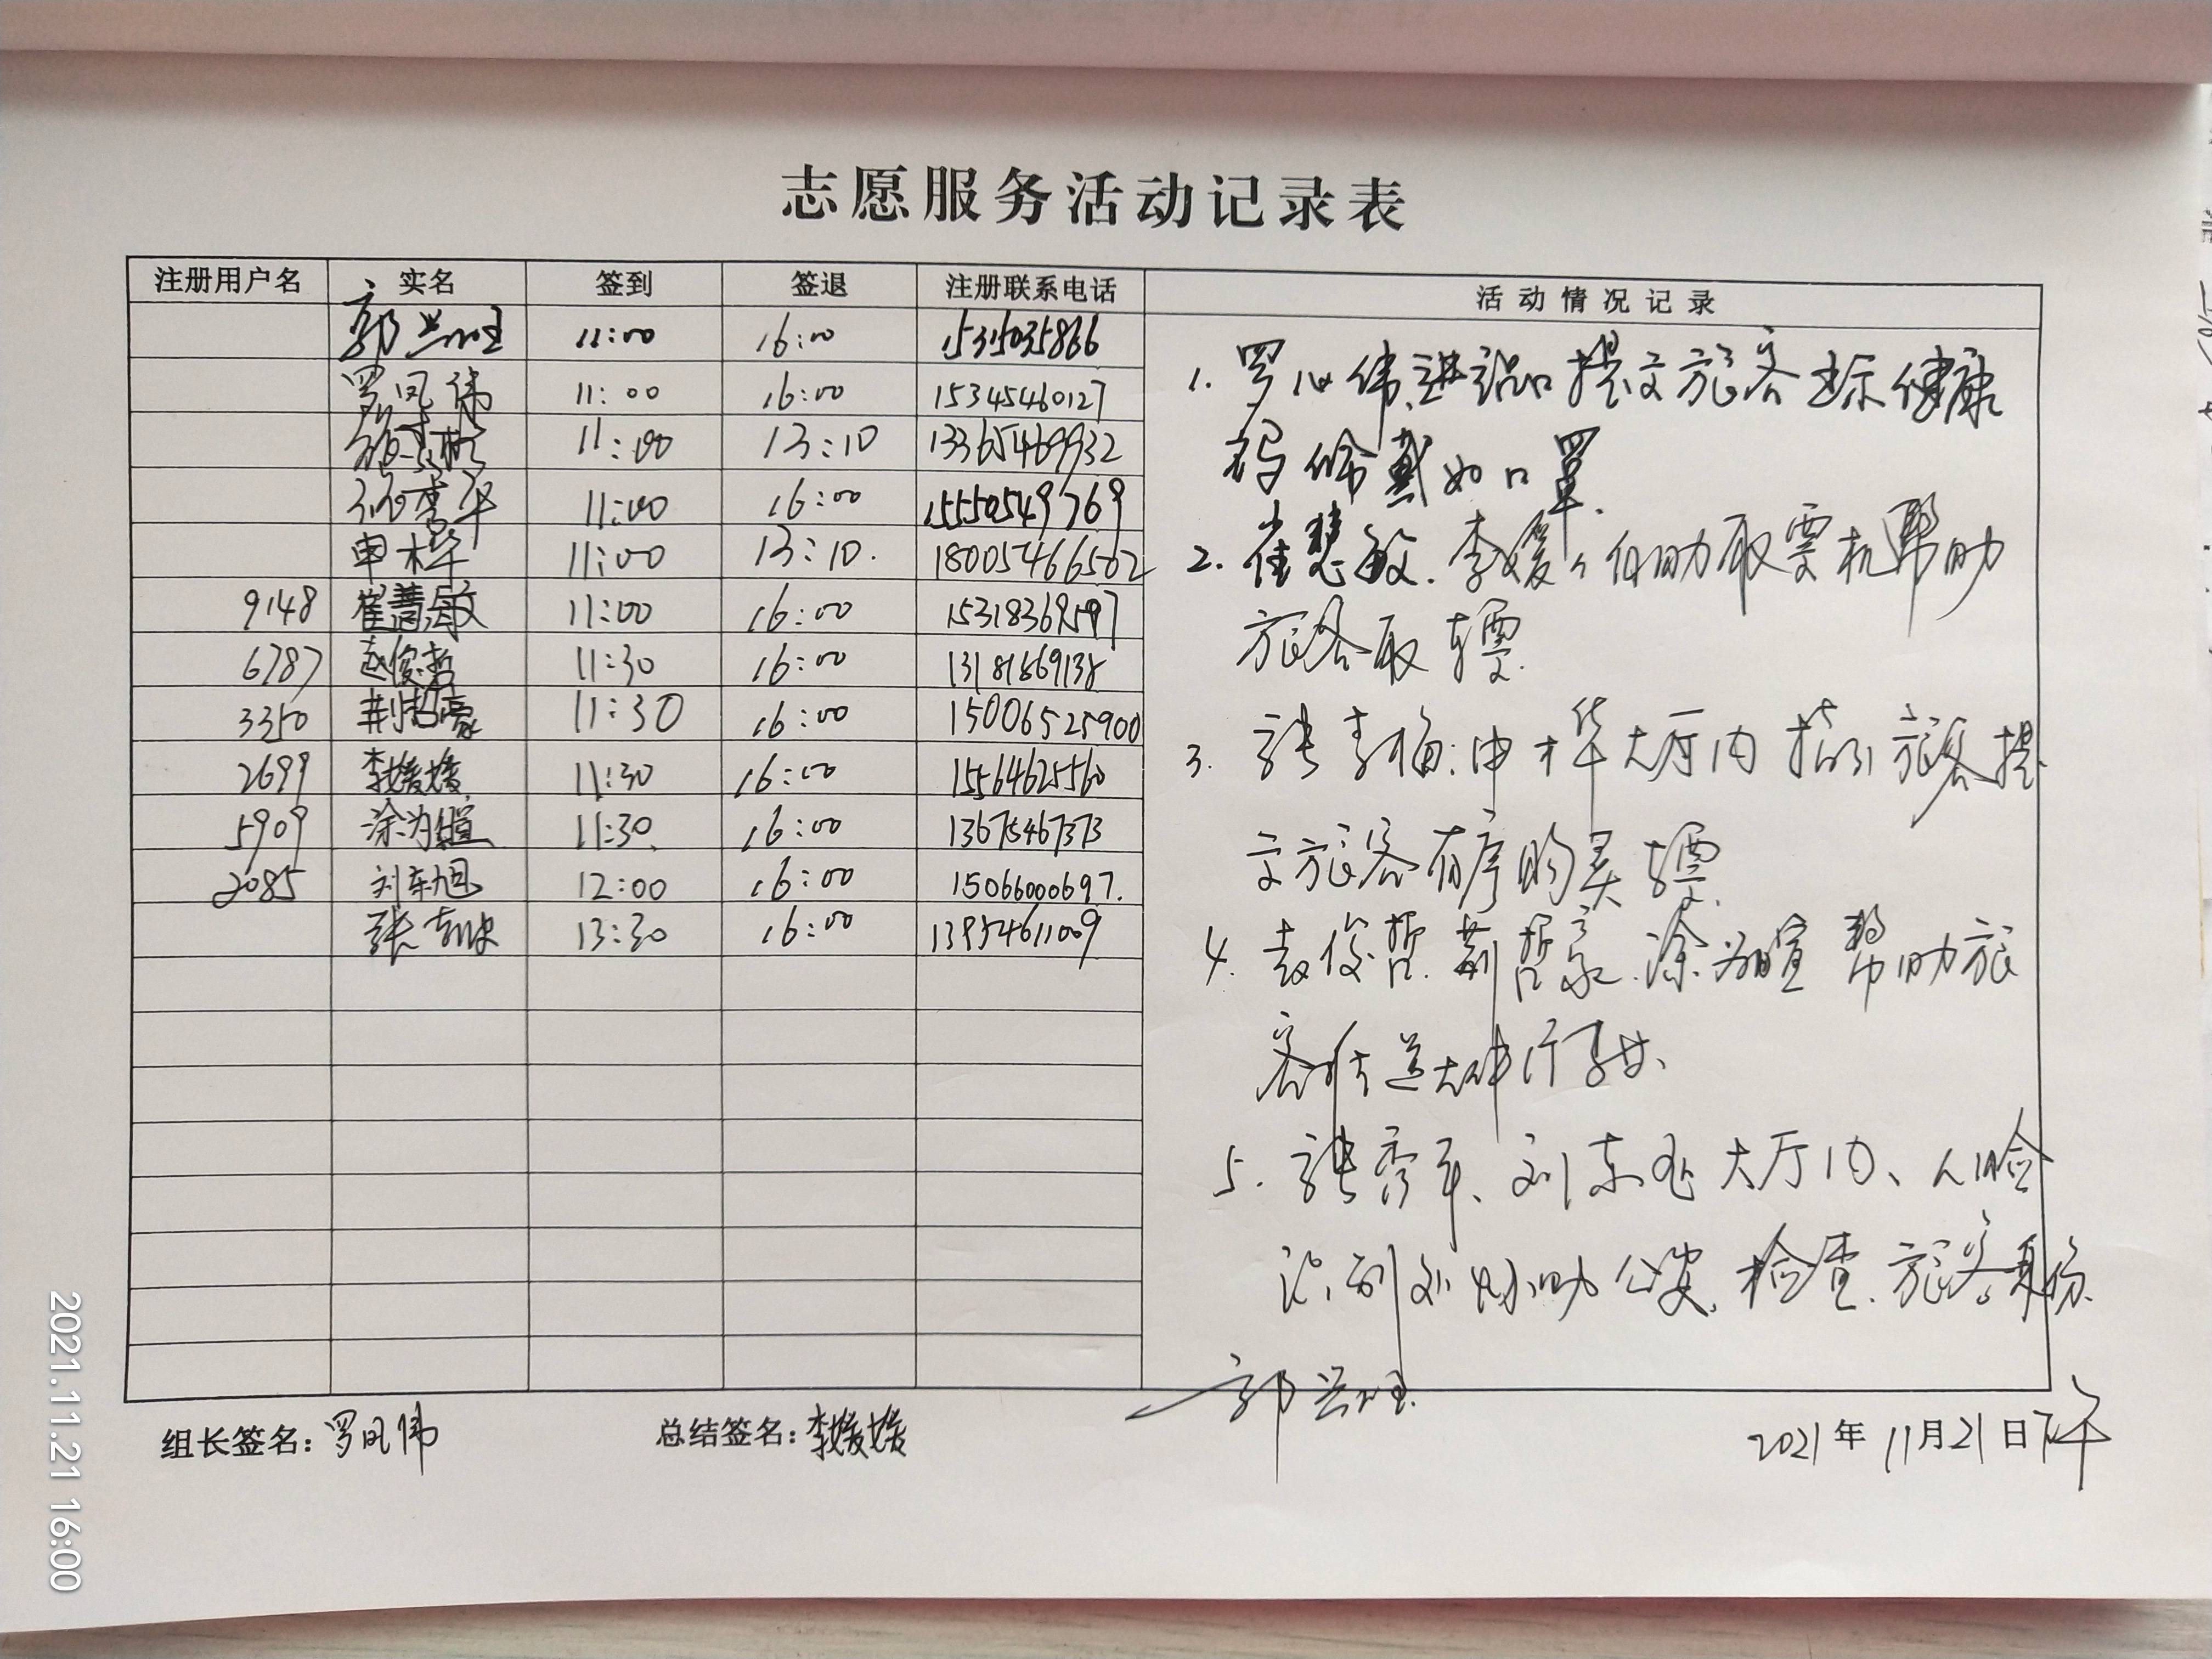 志愿服务活动记录表
注册用户名 实名 签到 签退 注册联系电话 活动情况记录
郭兴旺 11:00 16:00 15315035866
罗凤伟 11:00 16:00 15345460127
11:00 13:10 13365469932
张秀平 11:00 16:00 15550549769
申木华 11:00 13:10. 18005466502
9148 崔慧敏 11:00 16:00 15318369597
6787 赵俊哲 11:30 16:00
3350 荆哲豪 11:30 16:00 15006525900
2699 李媛媛 11:30 16:00 15564625560
5909 涂为暄 11:30 16:00 13675467373
2085 刘东旭 12:00 16:00 15066000697.
张 13:30 16:00 13954611009
1. 罗凤伟进站口提交旅客出示健康
码 佩戴好口罩.
2. 崔慧敏. 李媛媛 自助取票机帮助
旅客取车票.
3. 张青梅: 申木华大厅内指引旅客提
交旅客有序购买车票.
4. 赵俊哲. 荆哲豪. 涂为暄 帮助旅
客 送大件行李
5. 张秀平、刘东旭 大厅内、人脸
识别处协助公安. 检查. 旅客身份.
郭兴旺.
组长签名: 罗凤伟 总结签名: 李媛媛 2021年 11月21日下午
2021.11.21 16:00